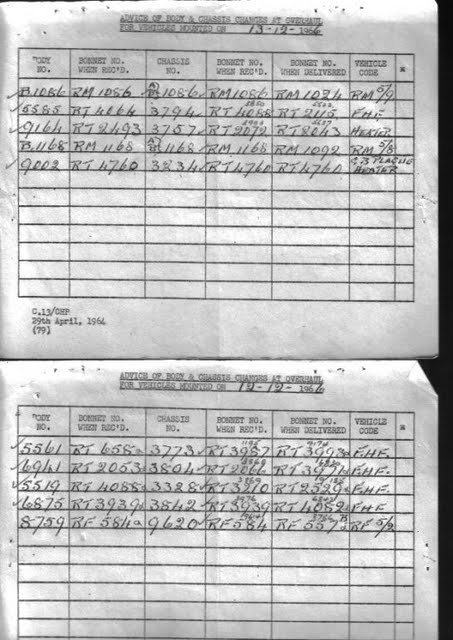 ADVICE OF BODY & CHASSIS CHANGES AT OVERHAUL
FOR VEHICLES MOUNTED ON 13-12-1966
BODY NO. BONNET NO. WHEN REC'D. CHASSIS NO. BONNET NO. WHEN REC'D. BONNET NO. WHEN DELIVERED VEHICLE CODE
B1086 RM 1086 1086 RM 1086 RM 1024 RM 5/9
5585 RT 4064 3794 RT 4088 RT 2115 FHF
9164 RT 2493 3757 RT 2072 RT 2043 HEATER
B1168 RM 1168 1168 RM 1168 RM 1092 RM 5/8
9002 RT 4760 3234 RT 4760 RT 4760 HEATER
C.13/CHP
29th April, 1964
(79)
ADVICE OF BODY & CHASSIS CHANGES AT OVERHAUL
FOR VEHICLES MOUNTED ON 12-12-1966
BODY NO. BONNET NO. WHEN REC'D. CHASSIS NO. BONNET NO. WHEN REC'D. BONNET NO. WHEN DELIVERED VEHICLE CODE
5561 RT 658 3773 RT 3987 RT 3993 FHF.
6941 RT 2053 3804 RT 2066 RT 3971 FHF.
5519 RT 4088 3328 RT 3210 RT 2529 FHF.
6875 RT 3939 3842 RT 3939 RT 4082 FHF
8759 RF 584 9620 RF 584 RF 557 RF 5/2